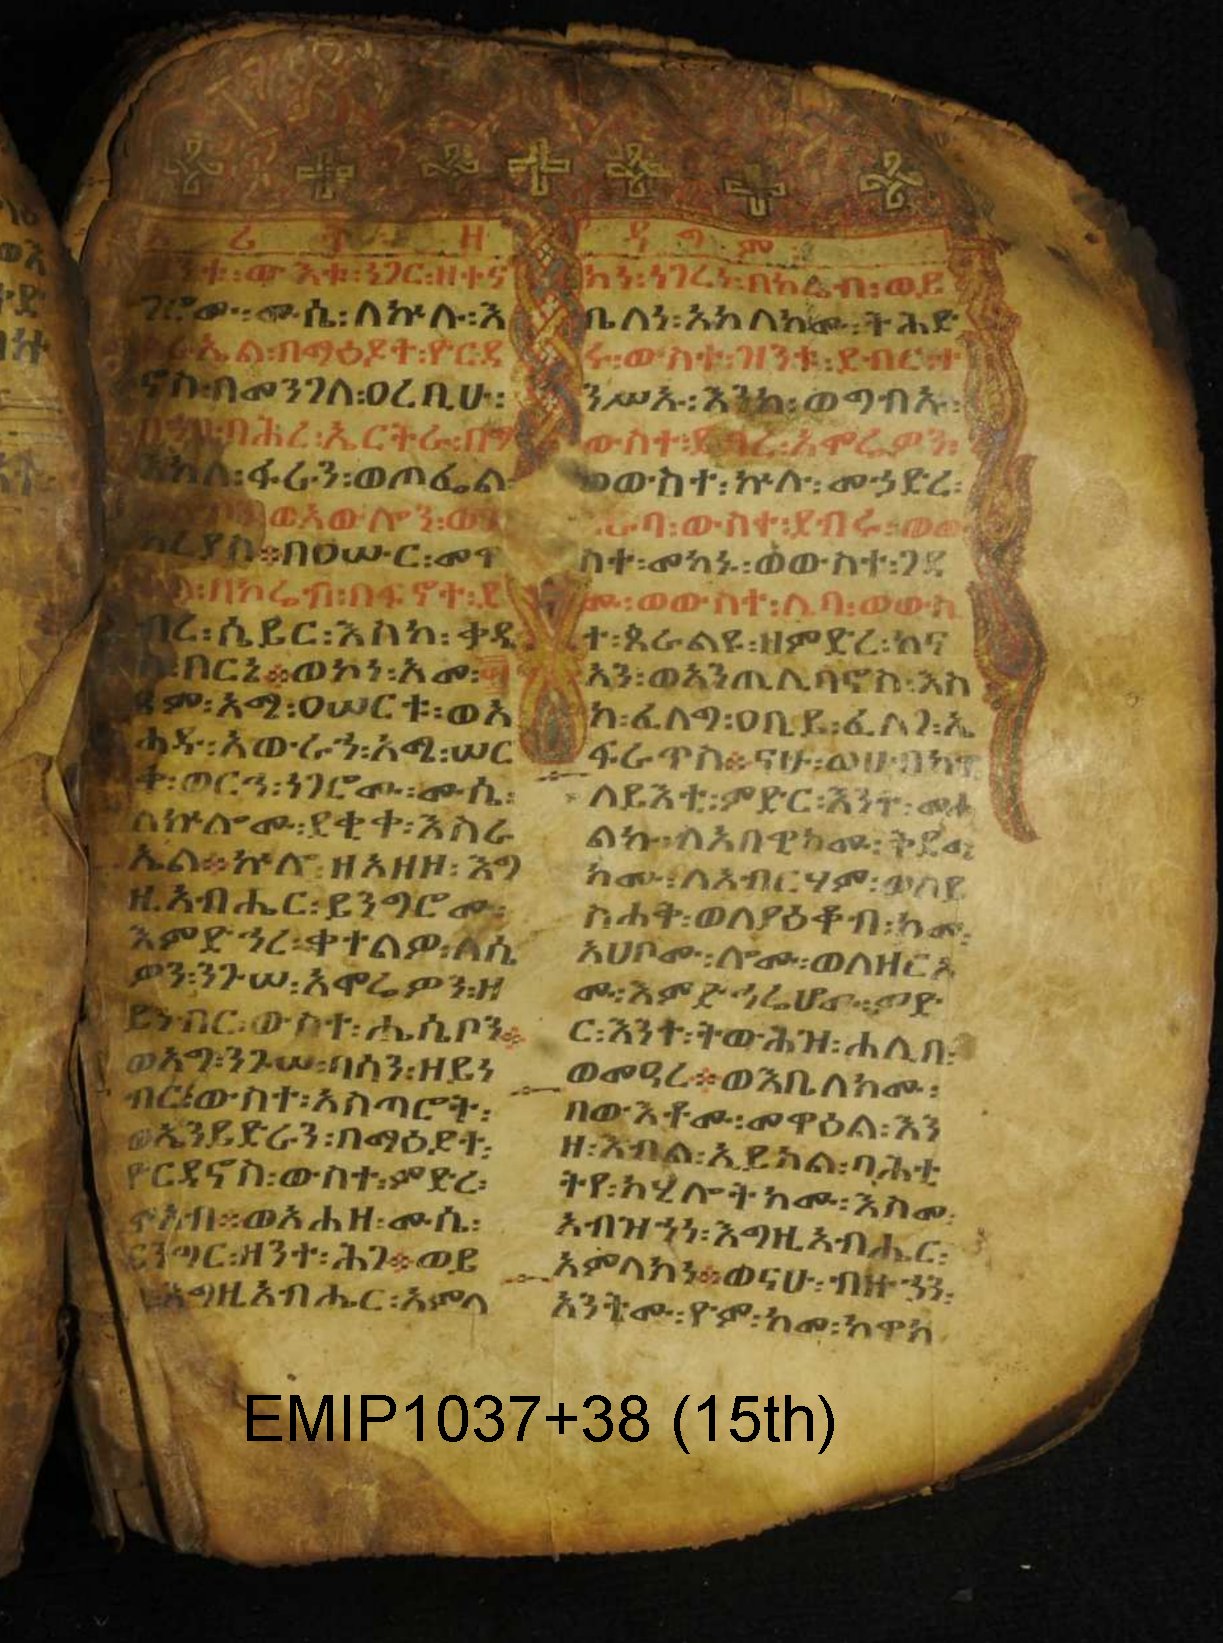 ሪት ዘ ዳግም
ዝንቱ፡ውእቱ፡ነገር፡ዘተና
ገሮሙ፡ሙሴ፡ለኵሉ፡እ
ስራኤል፡በማዕዶተ፡ዮርዳ
ኖስ፡በመንገለ፡ዐረቢሁ፡
በኀበ፡ባሕረ፡ኤርትራ፡በማ
እከለ፡ፋራን፡ወጦፌል
ወአውሎን፡
በዐሠውር፡መዋ
በኮሬብ፡በፍኖተ፡ደ
ብረ፡ሴይር፡እስከ፡ቃዴ
ስ፡በርኔ፨ወኮነ፡አመ፡
ዓም፡አሜ፡ዐሠርቱ፡ወአ
ሐዱ፡አውራኅ፡አሜ፡ሠር
ቀ፡ወርኅ፡ነገሮሙ፡ሙሴ፡
ለኵሎሙ፡ደቂቀ፡እስራ
ኤል፨ኵሎ፡ዘአዘዘ፡እግ
ዚአብሔር፡ይንግሮሙ፡
እምድኅረ፡ቀተልዎ፡ለሴ
ዎን፡ንጉሠ፡አሞሬዎን፡ዘ
ይነብር፡ውስተ፡ሔሴቦን፨
ወአግ፡ንጉሠ፡ባሳን፡ዘይነ
ብር፡ውስተ፡አስጣሮት፡
ወኤንይድራን፡በማዕዶተ፡
ዮርዳኖስ፡ውስተ፡ምድረ፡
ሞአብ፨ወአሐዘ፡ሙሴ፡
ይንግር፡ዘንተ፡ሕገ፨ወይ
ቤ፡እግዚአብሔር፡አምላ
ክነ፡ነገረነ፡በኮሬብ፡ወይ
ቤለነ፡አክለክሙ፡ትሕድ
ሩ፡ውስተ፡ዝንቱ፡ደብር፡ተ
ንሥኡ፡እንከ፡ወግብኡ፡
ውስተ፡ደብረ፡አሞሬዎን፡
ወውስተ፡ኵሉ፡መኃድረ፡
ዓራባ፡ውስተ፡ደብሩ፡ወው
ስተ፡መካኑ፡ወውስተ፡ገዳ
ሙ፡ወውስተ፡ሊባ፡ወውስ
ተ፡ጳራልዩ፡ዘምድረ፡ከና
አን፡ወአንጢሊባኖስ፡እስ
ከ፡ፈለግ፡ዐቢይ፡ፈለገ፡ኤ
ፍራጥስ፨ናሁ፡ወሀብኩ
ለይእቲ፡ምድር፡እንተ፡መሐ
ልኩ፡ለአበዊክሙ፡
ክሙ፡ለአብርሃም፡ወለይ
ስሐቅ፡ወለያዕቆብ፡ከመ፡
አሀቦሙ፡ሎሙ፡ወለዘርኦ
ሙ፡እምድኅሬሆሙ፡ምድ
ር፡እንተ፡ትውሕዝ፡ሐሊበ፡
ወመዓረ፨ወእቤለክሙ፡
በውእቶሙ፡መዋዕል፡እን
ዘ፡እብል፡ኢይክል፡ባሕቲ
ትየ፡ከሂሎትክሙ፡እስመ፡
አብዝኀነ፡እግዚአብሔር፡
አምላክነ፨ወናሁ፡ብዙኃን፡
አንትሙ፡ዮም፡ከመ፡ከዋክ
EMIP1037+38 (15th)